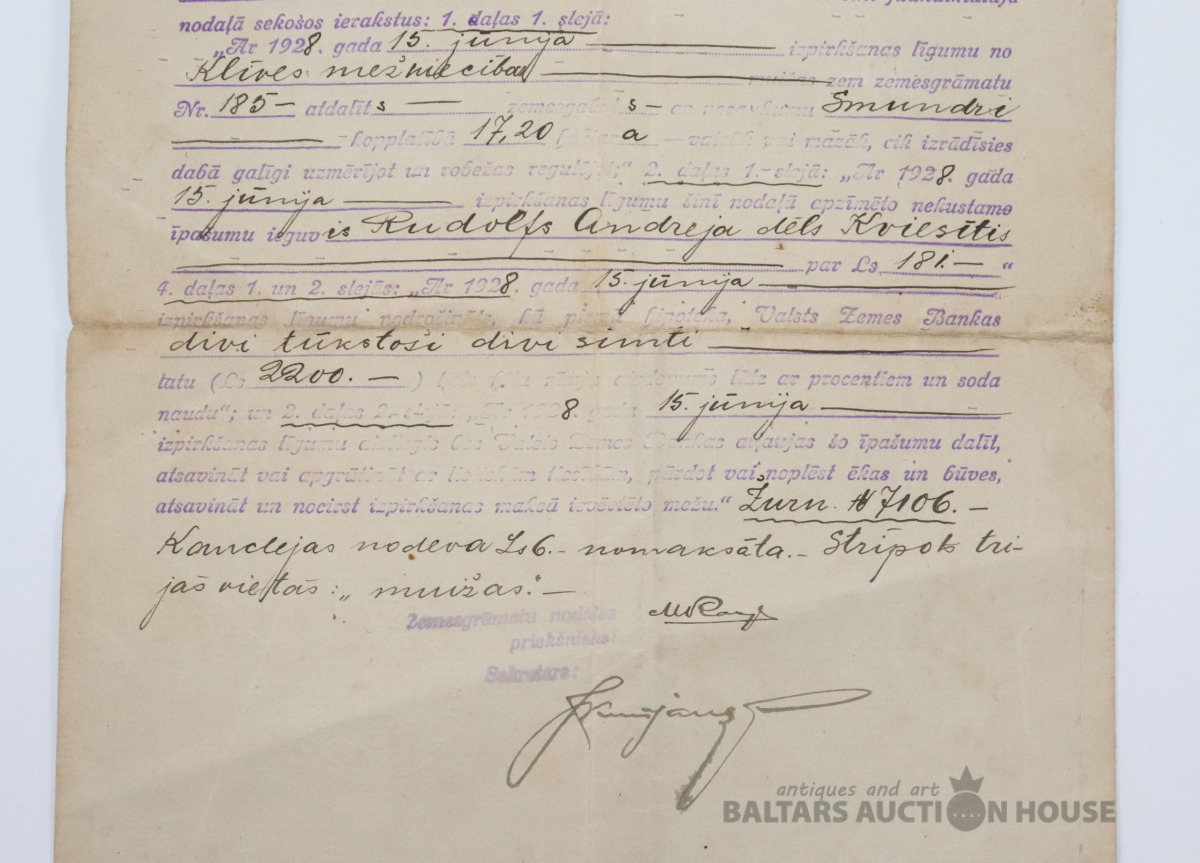 nodaļā sekošos ierakstus: 1. daļas 1. slejā:
„Ar 1928. gada 15. jūnija izpirkšanas līgumu no
Klīves mežniecības muižas zem zemesgrāmatu
Nr. 185 — atdalīts — zemesgabals — ar nosaukumu Smundri
— kopplatībā 17,20 hektara — vairāk vai mazāk, cik izrādīsies
dabā galīgi uzmērījot un robežas regulējot;“ 2. daļas 1. slejā: „Ar 1928. gada
15. jūnija — izpirkšanas līgumu šinī nodaļā apzīmēto nekustamo
īpašumu ieguvis Rudolfs Andreja dēls Kviesītis
par Ls 181.— “
4. daļas 1. un 2. slejās: „Ar 1928. gada 15. jūnija
izpirkšanas līgumu nodrošināts, kā pirmā hipotēka, Valsts Zemes Bankas
divi tūkstoši divi simti
latu (Ls 2200. — ) liels ilgu aizdevums līdz ar procentiem un soda
naudu“; un 2. daļas 2. slejā: „Ar 1928. gada 15. jūnija
izpirkšanas līgumu aizliegts bez Valsts Zemes Bankas atļaujas šo īpašumu dalīt,
atsavināt vai apgrūtināt ar lietiskām tiesībām, pārdot vai noplēst ēkas un būves,
atsavināt un nocirst izpirkšanas maksā ievērtēto mežu.“ Žurn. № 7106. —
Kanclejas nodeva Ls 6.— nomaksāta.— Strīpots trī-
jās vietās: „muižas“. —
Zemesgrāmatu nodaļas
priekšnieks:
Sekretars:
antiques and art
BALTARS AUCTION HOUSE